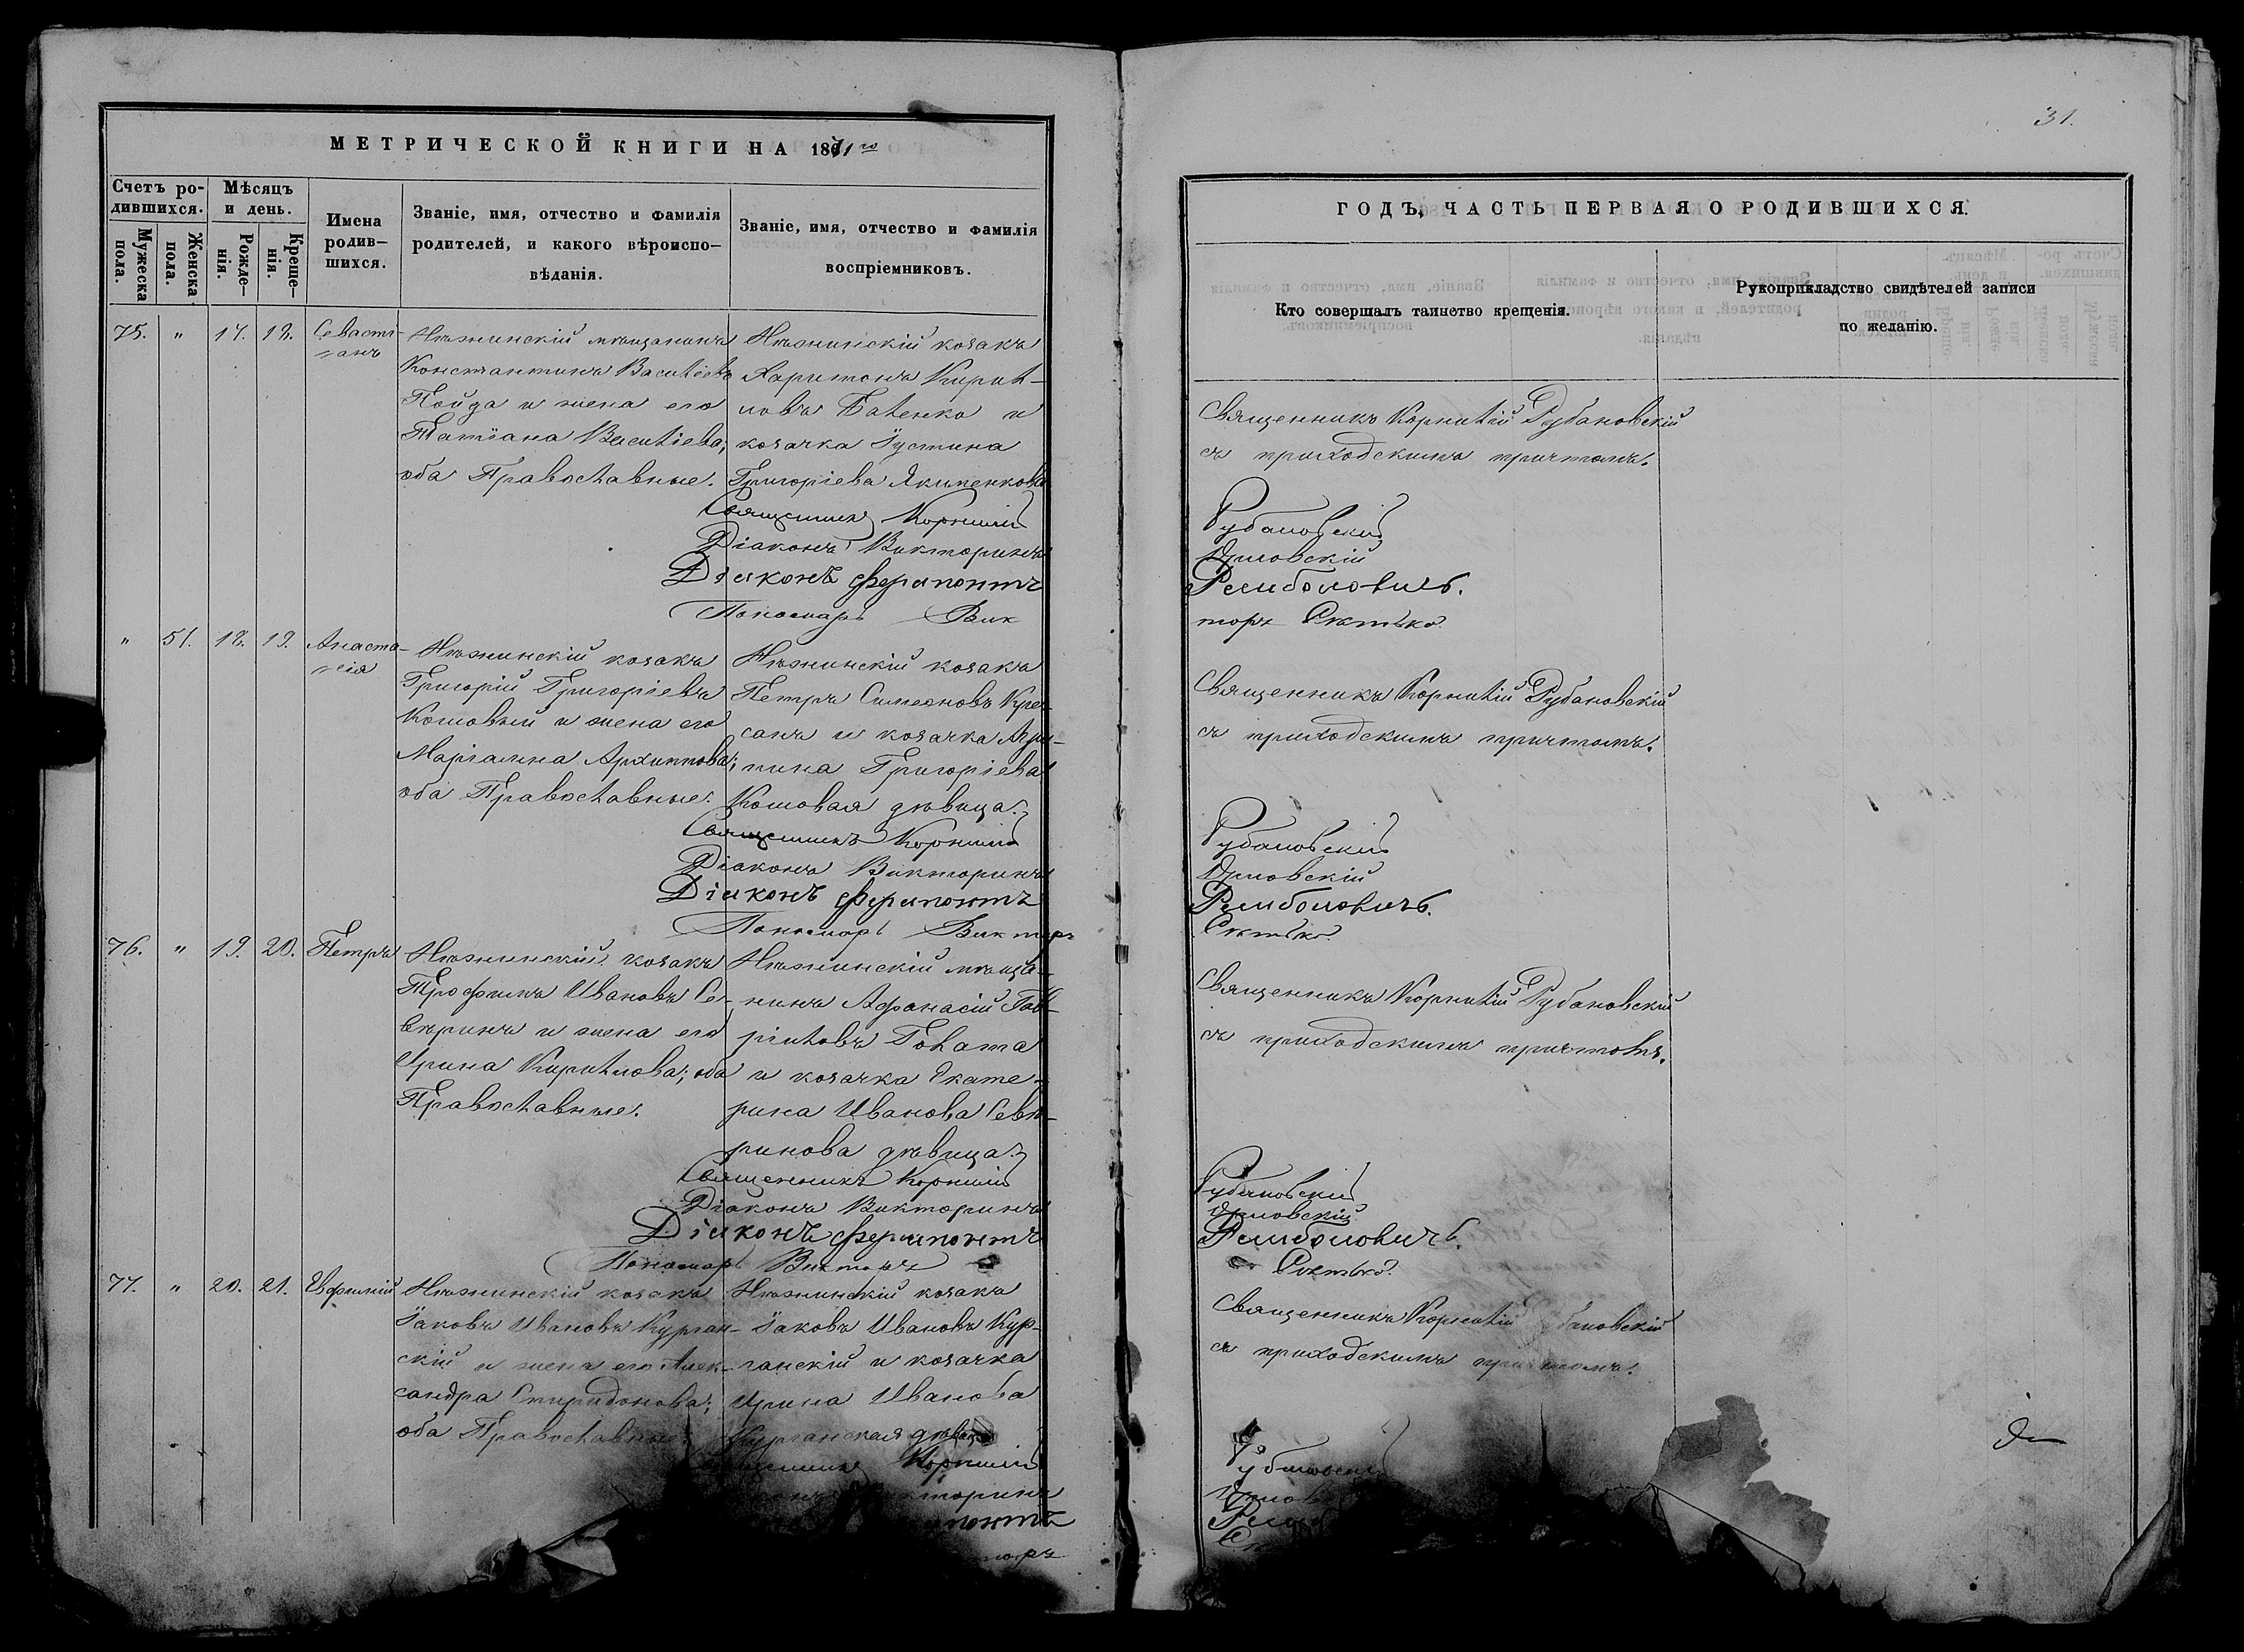 МЕТРИЧЕСКОЙ КНИГИ НА 1871го
Счетъ ро-
дившихся.
Мужеска
пола.
Женска
пола.
Мѣсяцъ
и день.
Рожде-
нія.
Креще-
нія.
Имена
родив-
шихся.
Званіе, имя, отчество и фамилія
родителей, и какого вѣроиспо-
вѣданія.
Званіе, имя, отчество и фамилія
воспріемниковъ.
75. " 17. 18.
Севасті-
анъ
Нѣжинскій мѣщанинъ
Константинъ Василіевъ
Пойда и жена его
Татіана Василіева;
оба Православные.
Нѣжинскій козакъ
Харитонъ Кирил-
ловъ Баленко и
козачка Іустина
Григоріева Якименкова
Священникъ Корнилій
Діаконъ Викторинъ
Діаконъ Ферапонтъ
Пономарь Вик
" 51. 18. 19.
Анаста-
сія
Нѣжинскій козакъ
Григорій Григоріевъ
Кошовый и жена его
Маріамна Архиппова;
оба Православные.
Нѣжинскій козакъ
Петръ Симеоновъ Кре-
санъ и козачка Агри-
пина Григоріева
Кошовая дѣвица.
Священникъ Корнилій
Діаконъ Викторинъ
Діаконъ Ферапонтъ
Пономарь Викторъ
76. " 19. 20.
Петръ
Нѣжинскій козакъ
Трофимъ Ивановъ Се-
вѣринъ и жена его
Ирина Кириллова; оба
Православные.
Нѣжинскій мѣща-
нинъ Афанасій Гав-
ріиловъ Гохата
и козачка Екате-
рина Иванова Севѣ-
ринова дѣвица.
Священникъ Корнилій
Діаконъ Викторинъ
Діаконъ Ферапонтъ
Пономарь Викторъ
77. " 20. 21.
Евфимій
Нѣжинскій козакъ
Іаковъ Ивановъ Курган-
скій и жена его Алек-
сандра Спиридонова;
оба Православные.
Нѣжинскій козакъ
Іаковъ Ивановъ Кур-
ганскій и козачка
Ирина Иванова
Курганская дѣвица
Корнилій
31.
ГОДЪ, ЧАСТЬ ПЕРВАЯ О РОДИВШИХСЯ.
Кто совершалъ таинство крещенія.
Рукоприкладство свидѣтелей записи
по желанію.
Священникъ Корнилій Рубановскій
съ приходскимъ причтомъ.
Рубановскій
Орловскій
Ремболовичъ.
торъ Сѣтько.
Священникъ Корнилій Рубановскій
съ приходскимъ причтомъ.
Рубановскій
Орловскій
Ремболовичъ.
Сѣтько.
Священникъ Корнилій Рубановскій
съ приходскимъ причтомъ.
Рубановскій
Орловскій
Ремболовичъ.
Сѣтько.
Священникъ Корнилій Рубановскій
съ приходскимъ причтомъ.
Рубановскій